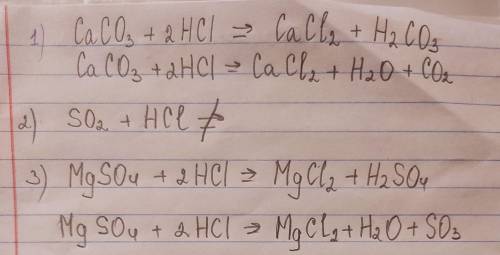 1) CaCO₃ + 2HCl ⇒ CaCl₂ + H₂CO₃
CaCO₃ + 2HCl ⇒ CaCl₂ + H₂O + CO₂
2) SO₂ + HCl ≠
3) MgSO₄ + 2HCl ⇒ MgCl₂ + H₂SO₄
MgSO₄ + 2HCl ⇒ MgCl₂ + H₂O + SO₃